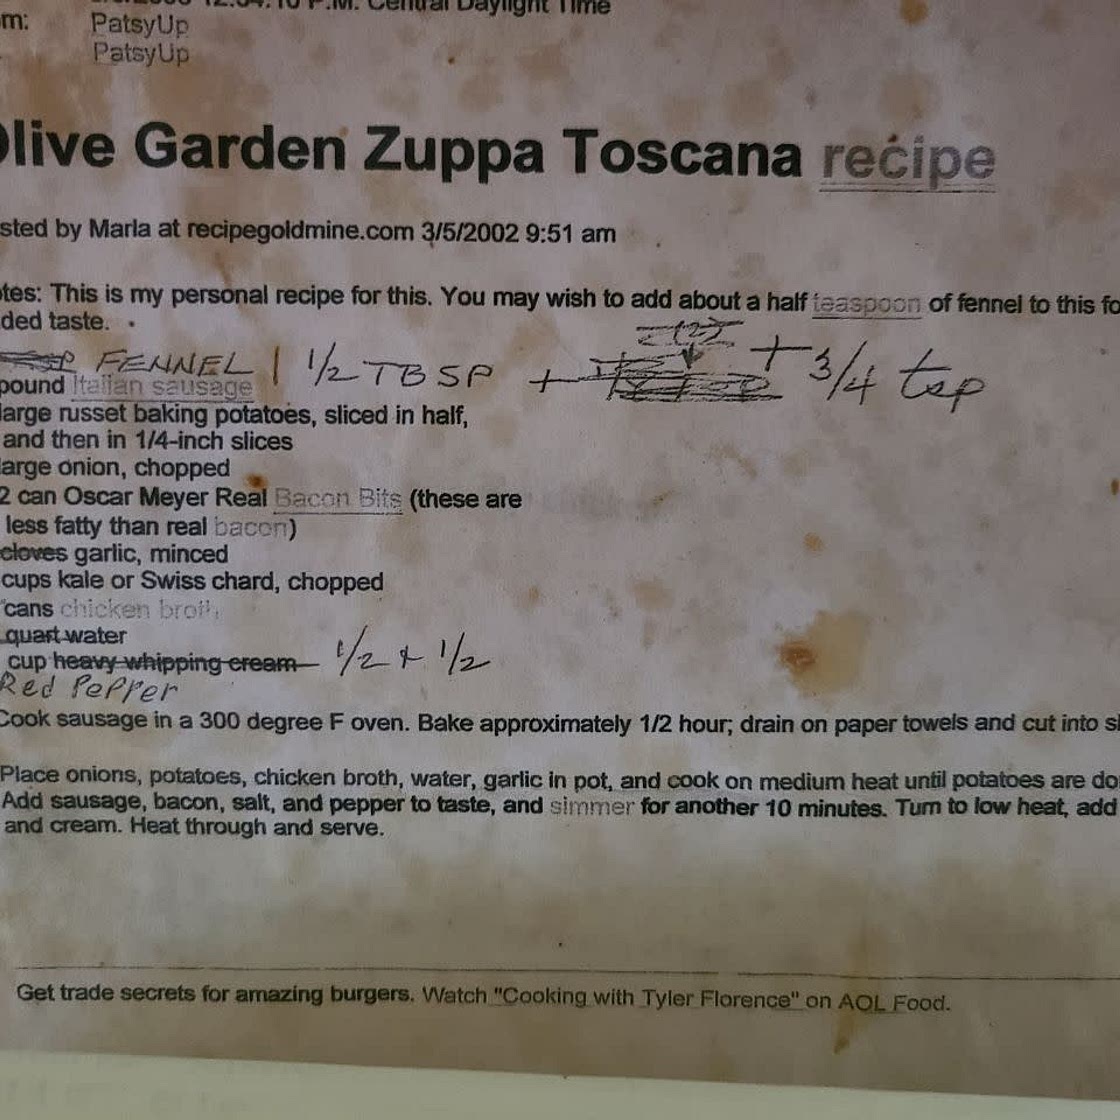 12:04:10 P.M. Central Daylight Time
m: PatsyUp
PatsyUp
Olive Garden Zuppa Toscana recipe
sted by Marla at recipegoldmine.com 3/5/2002 9:51 am
tes: This is my personal recipe for this. You may wish to add about a half teaspoon of fennel to this fo
ded taste.
FENNEL | 1/2 TBSP + + 3/4 tsp
pound Italian sausage
large russet baking potatoes, sliced in half,
and then in 1/4-inch slices
large onion, chopped
2 can Oscar Meyer Real Bacon Bits (these are
less fatty than real bacon)
cloves garlic, minced
cups kale or Swiss chard, chopped
cans chicken broth
quart water
cup heavy whipping cream 1/2 + 1/2
Red Pepper
Cook sausage in a 300 degree F oven. Bake approximately 1/2 hour; drain on paper towels and cut into sl
Place onions, potatoes, chicken broth, water, garlic in pot, and cook on medium heat until potatoes are do
Add sausage, bacon, salt, and pepper to taste, and simmer for another 10 minutes. Turn to low heat, add
and cream. Heat through and serve.
Get trade secrets for amazing burgers. Watch "Cooking with Tyler Florence" on AOL Food.